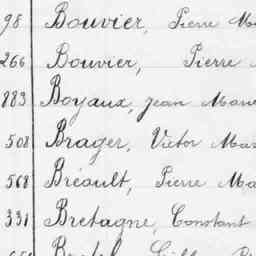 98 Bouvier, Pierre
266 Bouvier, Pierre
883 Boyaux, Jean Marie
508 Brager, Victor
568 Bréault, Pierre
331 Bretagne, Constant